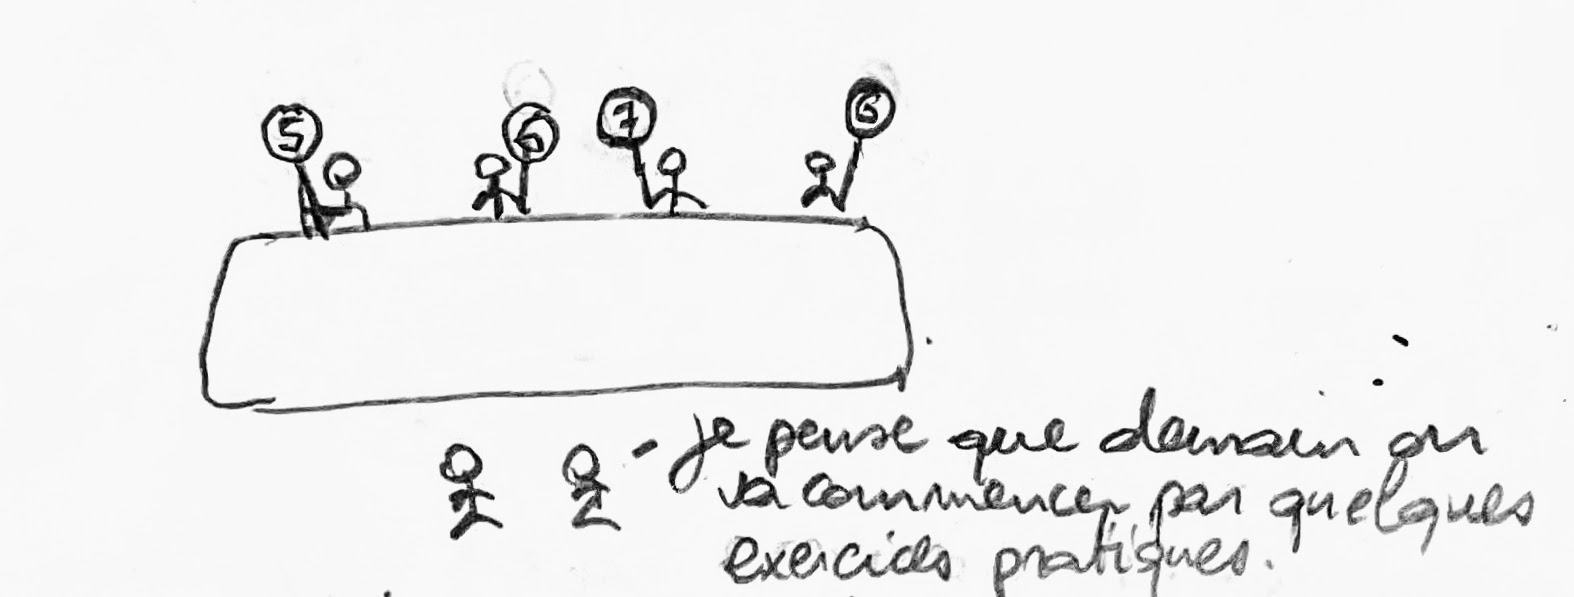 5 6 7 6
- je pense que demain on
va commencer par quelques
exercices pratiques.